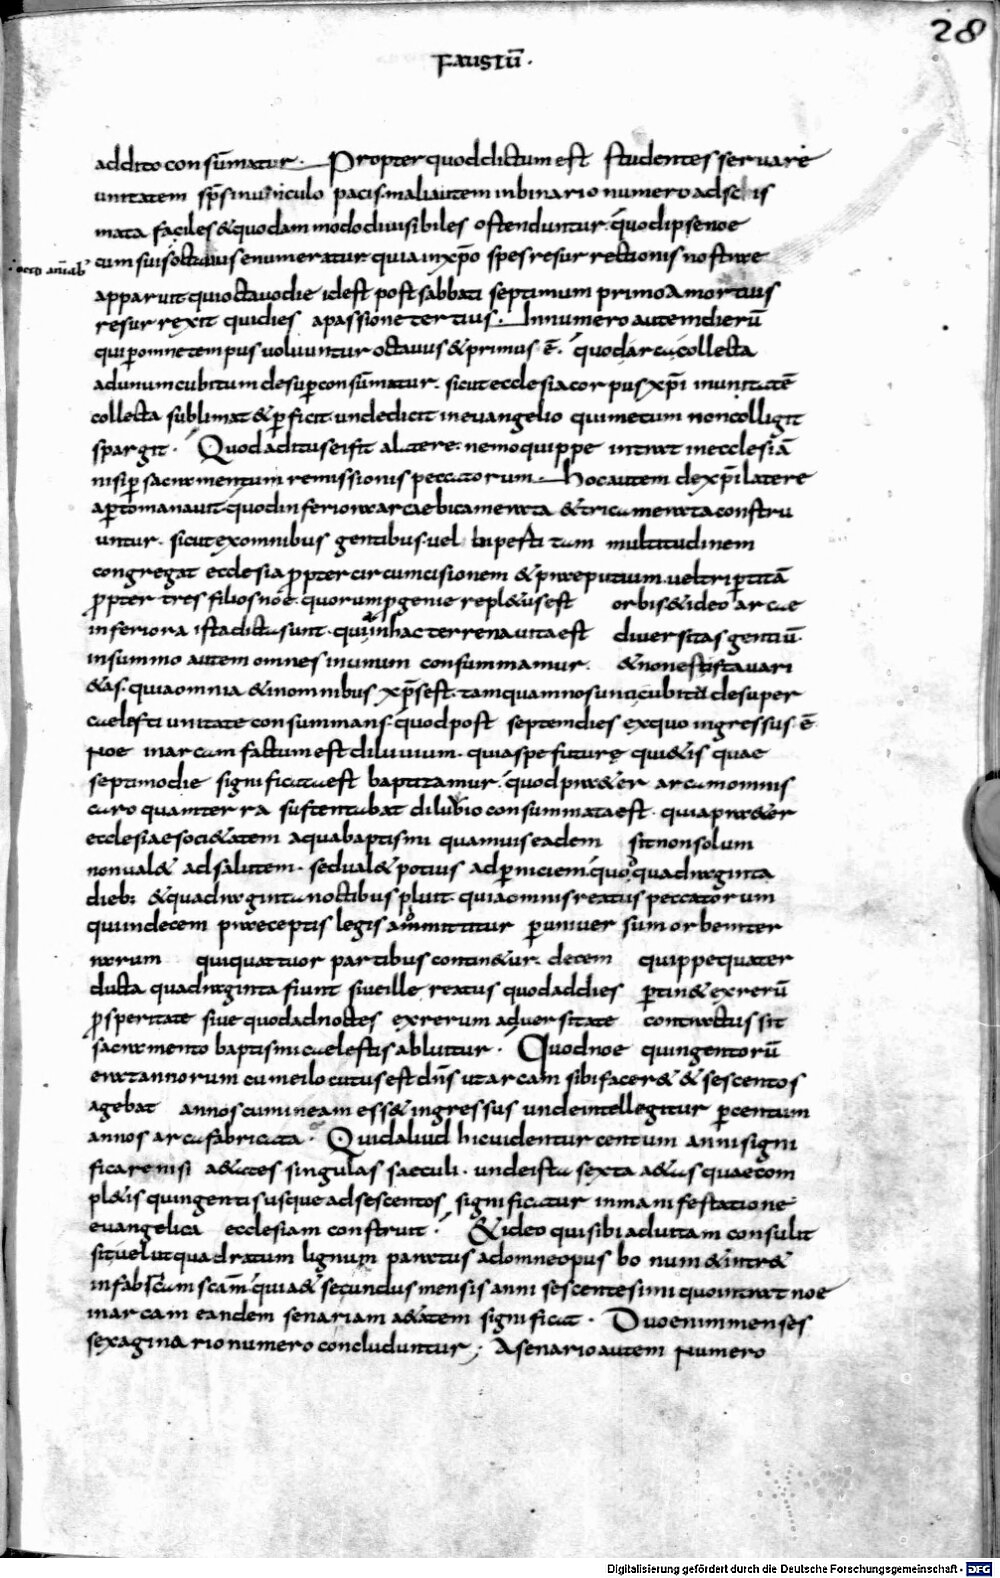 28
FAUSTŪ·
addito consūmatur· Propter quod dictum est studentes servare
unitatem sp̄s in vinculo pacis· mali autem in binario numero ad schis
mata faciles & quodam modo divisibiles ostenduntur· quod ipse noe
cum suis octavus enumeratur· quia in xp̄o spes resurrectionis nostrae
apparuit qui octavo die id est post sabbati septimum primo a mortuis
resurrexit qui dies a passione tertius· In numero autem dierū
qui p̄ omne tempus volvuntur octavus & primus ē· quod arca collecta
ad unum cubitum desup̄ consūmatur· sicut ecclesia corpus xp̄i in unitatē
collecta sublimat & p̄ficit· unde dicit in evangelio qui mecum non colligit
spargit· Quod aditus ei fit a latere· nemo quippe intrat in ecclesiā
nisi p̄ sacramentum remissionis peccatorum· hoc autem de xp̄i latere
ap̄to manavit· quod inferiora arcae bicamerata & tricamerata constru
untur· sicut ex omnibus gentibus· vel bipertitam multitudinem
congregat ecclesia p̄pter circumcisionem & praeputium· vel trip̄titā
p̄pter tres filios noe· quorum p̄genie repl&us est orbis & ideo arcae
inferiora ista dicta sunt· quia in hac terrena vita est diversitas gentiū·
in summo autem omnes in unum consummamur· & non est ista vari
&as· quia omnia & in omnibus xp̄s est· tamquam nos uni cubito desuper
caelesti unitate consummans· quod post septem dies ex quo ingressus ē
Noe in arcam factum est diluvium· quia spe futurę qui&is quae
septimo die significata est baptizamur· quod praeter arcam omnis
caro quam terra sustentabat diluvio consummata est· quia praeter
ecclesiae soci&atem aqua baptismi quamvis eadem sit non solum
non val& ad salutem· sed val& potius ad p̄niciem· quod quadraginta
dieb; & quadraginta noctibus pluit· quia omnis reatus peccatorum
qui in decem praeceptis legis ammittitur p̄ universum orbem ter
rarum qui quattuor partibus contin&ur· decem quippe quater
ducta quadraginta fiunt sive ille reatus quod ad dies p̄tin& ex rerū
p̄speritate sive quod ad noctes ex rerum adversitate contractus sit
sacramento baptismi caelestis abluitur· Quod noe quingentorū
erat annorum cum ei locutus est dn̄s ut arcam sibi facer& & sescentos
agebat annos cum in eam ess& ingressus unde intellegitur p̄ centum
annos arca fabricata· Quid aliud hic videntur centum anni signi
ficare nisi a&ates singulas saeculi· unde ista sexta a&as quae com
pl&is quingentis usque ad sescentos significatur in manifestatione
evangelica ecclesiam construit· & ideo qui sibi ad vitam consulit
sit velut quadratum lignum paratus ad omne opus bonum & intr&
in fabricam scam· quia & secundus mensis anni sescentesimi quo intrat noe
in arcam eandem senariam a&atem significat· Duo enim menses
sexaginario numero concluduntur; A senario autem numero
Digitalisierung gefördert durch die Deutsche Forschungsgemeinschaft - DFG